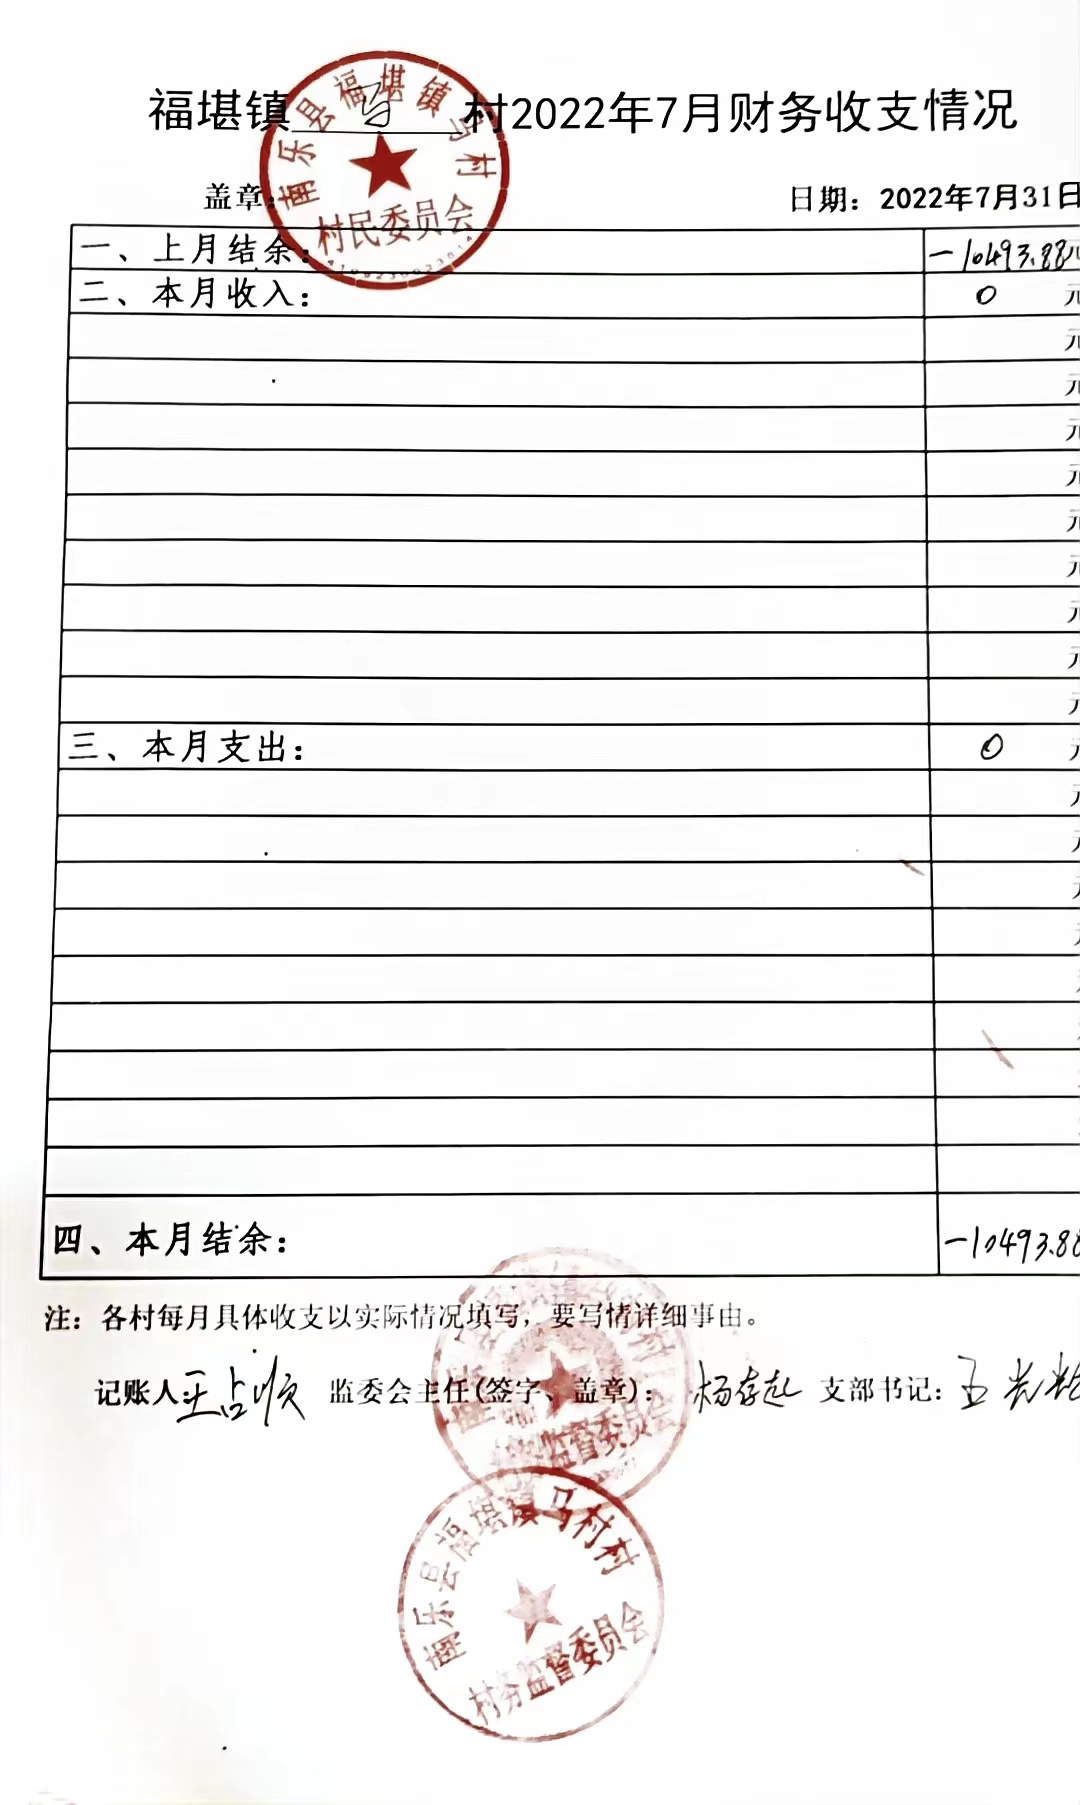 福堪镇 马 村2022年7月财务收支情况
南乐县福堪镇马村
村民委员会
盖章: 日期: 2022年7月31日
一、上月结余: -10493.88元
二、本月收入: 0 元
元
元
元
元
元
元
元
元
元
三、本月支出: 0 元
元
元
元
四、本月结余: -10493.88
注: 各村每月具体收支以实际情况填写, 要写情详细事由。
记账人: 王占顺 监委会主任(签字、盖章): 杨存起 支部书记: 王光
监督委员会
南乐县福堪镇马村村
村务监督委员会